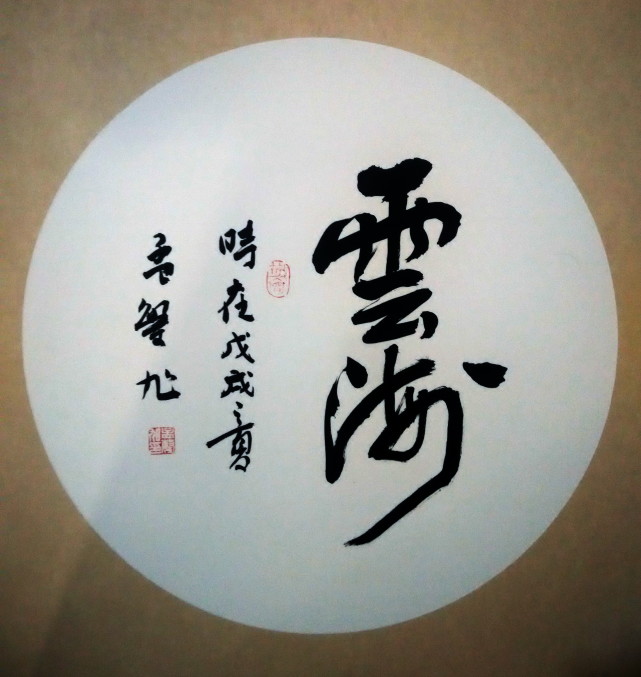 雲海
時在戊戌之夏
孟